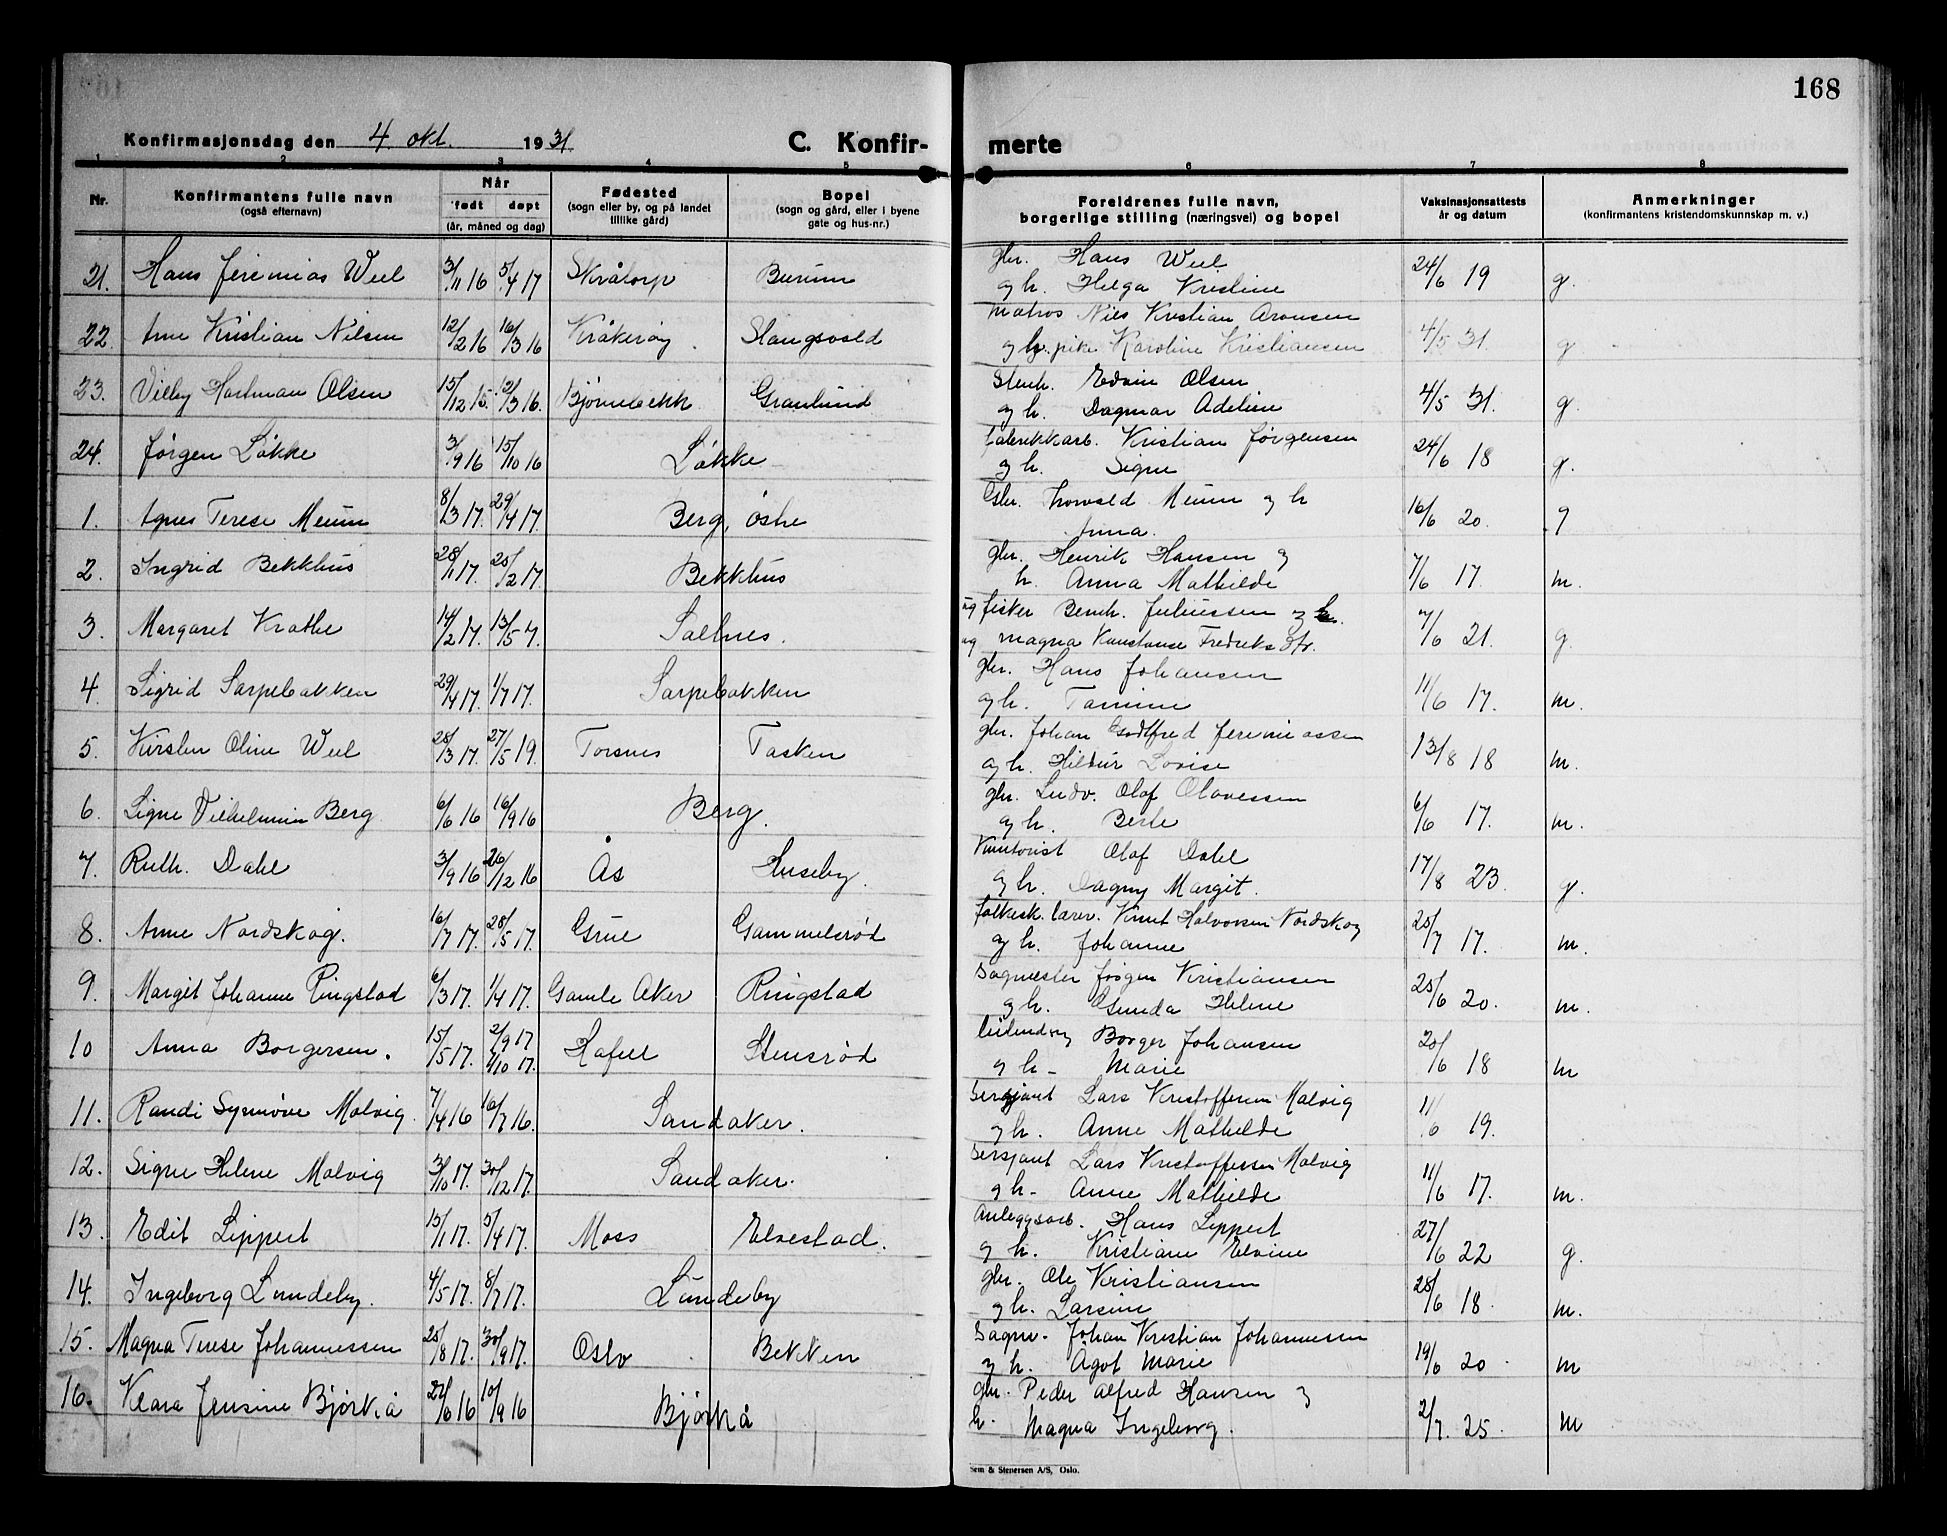 168
Konfirmasjonsdag den 4. okt. 1931. C. Konfir- merte
1 2 3 4 5 6 7 8
Nr. Konfirmantens fulle navn (også efternavn) Når født døpt (år, måned og dag) Fødested (sogn eller by, og på landet tillike gård) Bopel (sogn og gård, eller i byene gate og hus-nr.) Foreldrenes fulle navn, borgerlige stilling (næringsvei) og bopel Vaksinasjonsattests år og datum Anmerkninger (konfirmantens kristendomskunnskap m. v.)
21. Hans Jeremias Weel 3/11 16 5/4 17 Skråtorp Burum gbr. Hans Weel
og h. Helga Kristine 24/6 19 g.
22. Arne Kristian Nilsen 12/2 16 16/3 16 Kråkerøy Slangsvold Matros Nils Kristian Aronsen
og pike Karoline Kristiansen 4/5 31. g
23. Villy Hartman Olsen 15/12 15. 12/3 16. Bjørnebekk Granlund Stenh. Edvin Olsen
og h. Dagmar Adeline 4/5 31. g.
24. Jørgen Løkke 3/9 16 15/10 16 Løkke fabrikkarb. Kristian Jørgensen
og h. Signe 24/6 18 g.
1. Agnes Terese Meum 8/3 17. 29/4 17. Berg, østre Gbr. Thorvald Meum og h
Anna. 16/6 20. g
2. Ingrid Bekkhus 28/1 17. 25/2 17. Bekkhus gbr. Henrik Hansen og
h. Anna Mathilde 7/6 17. m.
3. Margaret Krathe 14/2 17. 13/5 17. Saltnes. fisker Bernh. Juliussen og
og Magna Konstanse Fredriks dtr. 7/6 21. g.
4 Sigrid Sarpebakken 29/4 17. 1/7 17. Sarpebakken gbr. Hans Johansen
og h. Tomine 11/6 17. m.
5. Kirsten Oline Weel 28/3 17. 27/5 19. Torsnes Tasken gbr. Johan Godtfred Jeremiassen
og h. Hildur Lovise 13/8 18 m.
6. Signe Vilhelmine Berg 6/6 16 16/9 16 Berg. gbr. Ludv. Olaf Olavessen
og h. Berte 6/6 17. m.
7. Ruth. Dahl 3/9 16 26/12 16 Ås Huseby. Kontorist Olaf Dahl
og h. Dagny Margit. 17/8 23. g.
8. Anne Nordskog. 16/7 17. 28/5 17. Grue Gammelsrød folkesk. lærer. Knut Halvorsen Nordskog
og h. Johanne 25/7 17. m.
9. Margit Johanne Ringstad 6/3 17. 1/4 17. Gamle Aker Ringstad Sagmester Jørgen Kristiansen
og h. Gunda Helene 25/6 20. m.
10 Anna Borgersen. 15/5 17. 2/9 17 7/10 17. Hafell Stensrød Borger Johansen
og h - Marie 20/6 18 m
11. Randi Synnøve Malvig. 7/4 16 16/7 16. Sandaker. Sersjant Lars Kristoffersen Malvig
og h. Anne Mathilde 11/6 19.
12. Signe Helene Malvig 31/10 17. 30/12 17. Sandaker. Sersjant Lars Kristoffersen Malvig
og h - Anne Mathilde 11/6 17. m.
13. Edit Lippert 15/1 17. 5/4 17. Moss Elvestad. Anleggsarb. Hans Lippert
og h. Kristiane Elvine 27/6 22 g.
14. Ingeborg Lundeby. 4/5 17. 8/7 17. Lundeby gbr. Ole Kristiansen
og h. Larsine 28/6 18. m.
15. Magna Terese Johannessen 25/8 17. 30/9 17. Oslo Bekken Sagm. Johan Kristian Johannesen
og h. Agot Marie 19/6 20. m
16. Klara Jensine Bjørkå 22/6 16 10/9 16 Bjørkå gbr. Peder Alfred Hansen og
h. Magna Ingeborg. 2/7. 25. m
Sem & Stenersen A/S, Oslo.